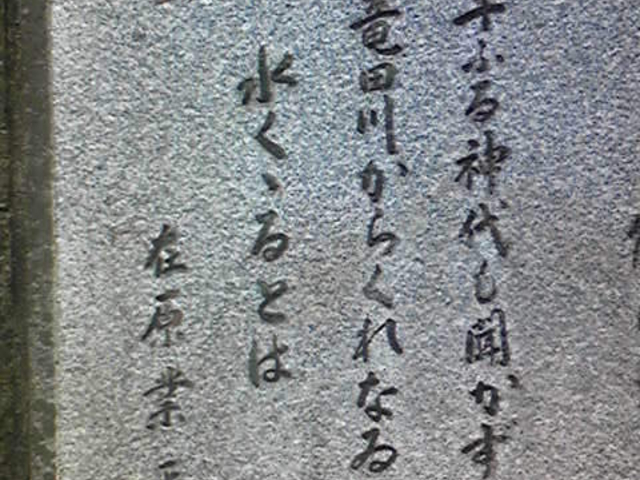 ふる神代も聞かず
竜田川からくれなゐ
水くゝるとは
在原業